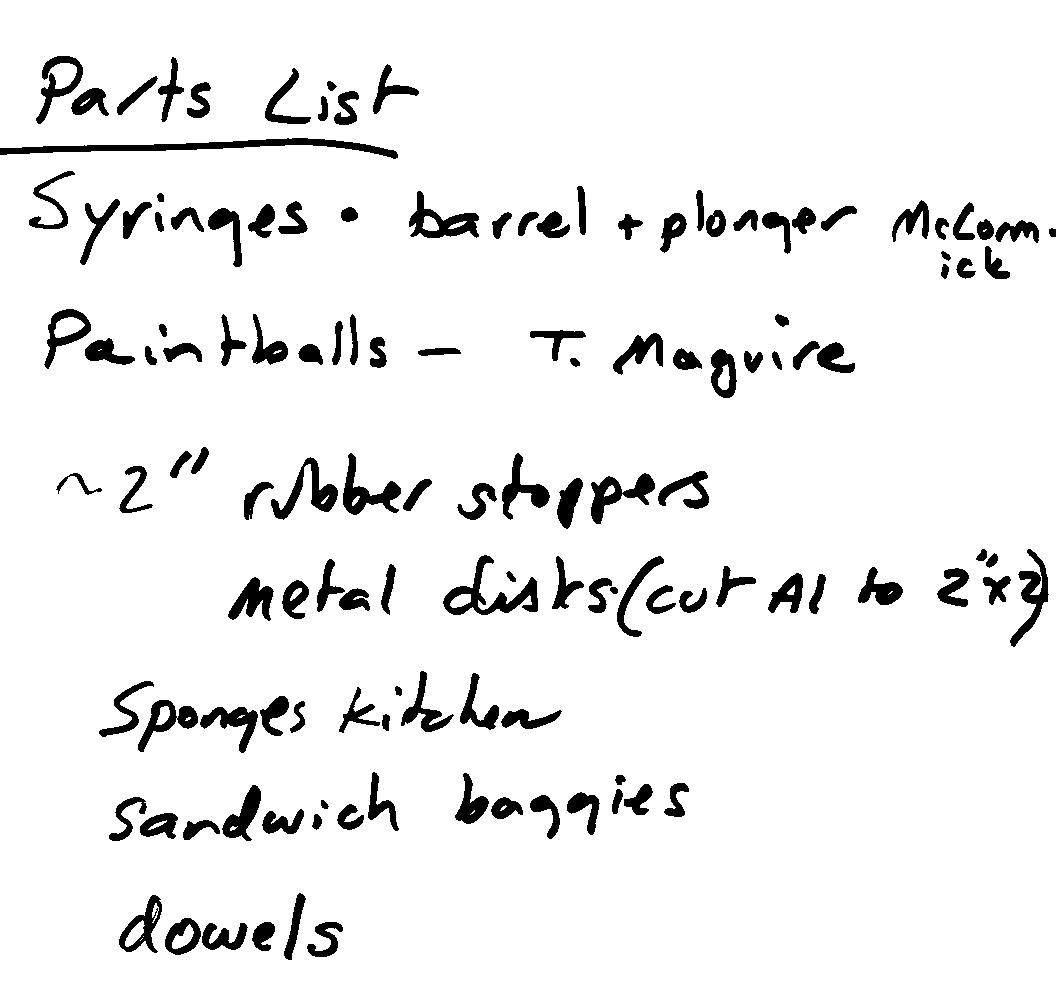 Parts List
Syringes • barrel + plonger McCorm.
ick
Paintballs – T. Maguire
~2" rubber stoppers
metal disks (cut Al to 2"x2)
Sponges kitchen
sandwich baggies
dowels